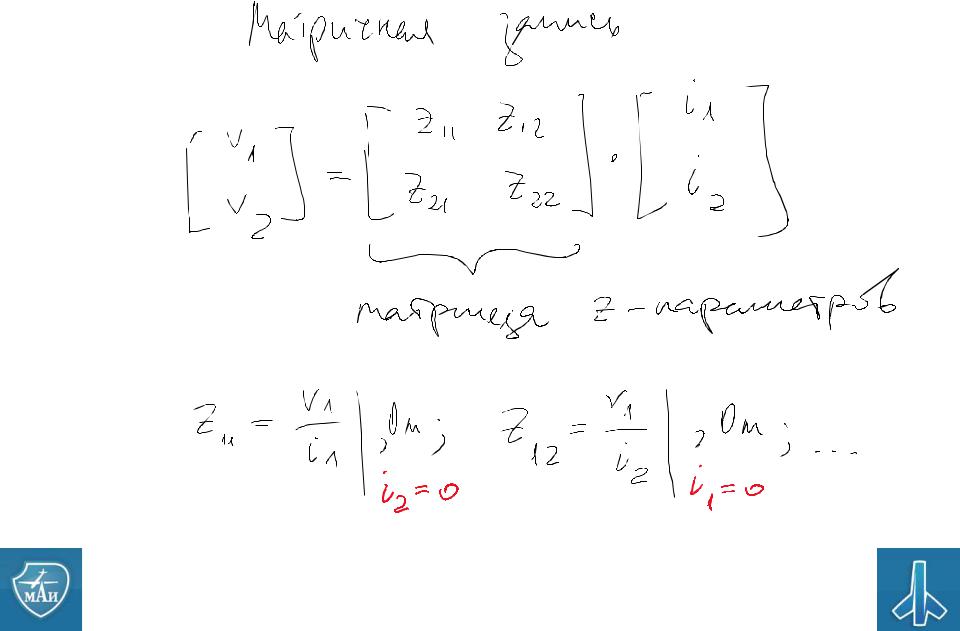 Матричная запись
[v₁ v₂] = [z₁₁ z₁₂ z₂₁ z₂₂] · [i₁ i₂]
матрица z-параметров
z₁₁ = v₁/i₁ |i₂=0, Ом; z₁₂ = v₁/i₂ |i₁=0, Ом; ...
МАИ